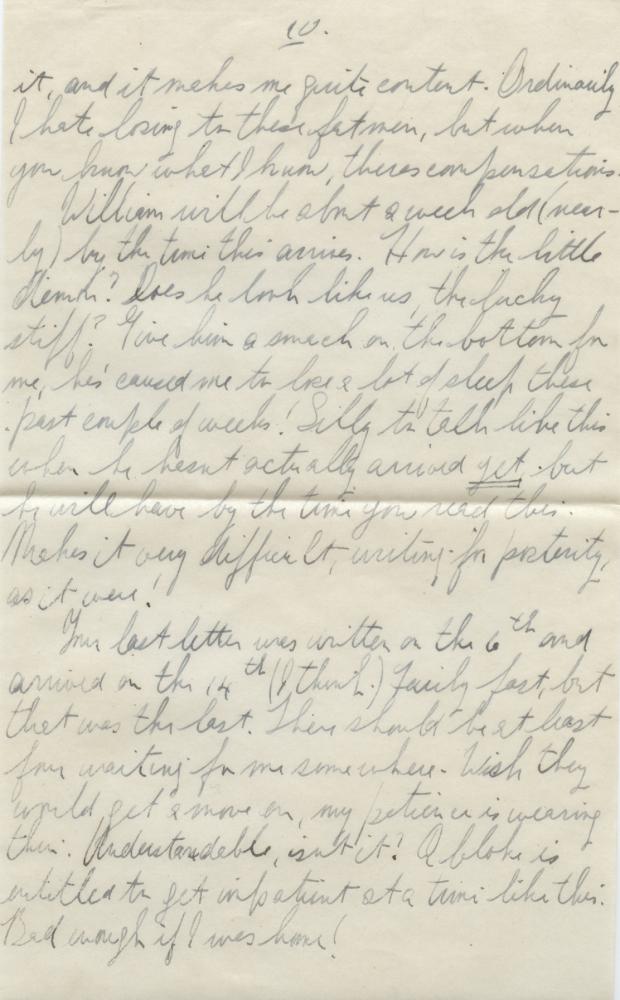 10.
it, and it makes me quite content. Ordinarily
I hate losing to these fatmen, but when
you know what I know, theres compensations.
William will be about a week old (near-
ly) by the time this arrives. How is the little
demon? Does he look like us, the lucky
stiff? Give him a smack on the bottom for
me, he's caused me to lose a lot of sleep these
past couple of weeks! Silly to talk like this
when he hasnt actually arrived yet, but
he will have by the time you read this.
Makes it very difficult, writing for posterity,
as it were!
Your last letter was written on the 6th and
arrived on the 14th (I think.) Fairly fast, but
that was the last. There should be at least
four waiting for me somewhere. Wish they
would get a move on, my patience is wearing
thin. Understandable, isn't it? A bloke is
entitled to get impatient at a time like this.
Bad enough if I was home!